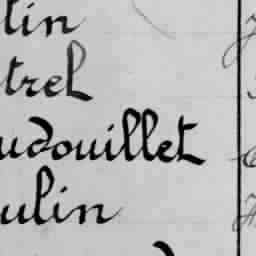 lin
trel
udouillet
ulin